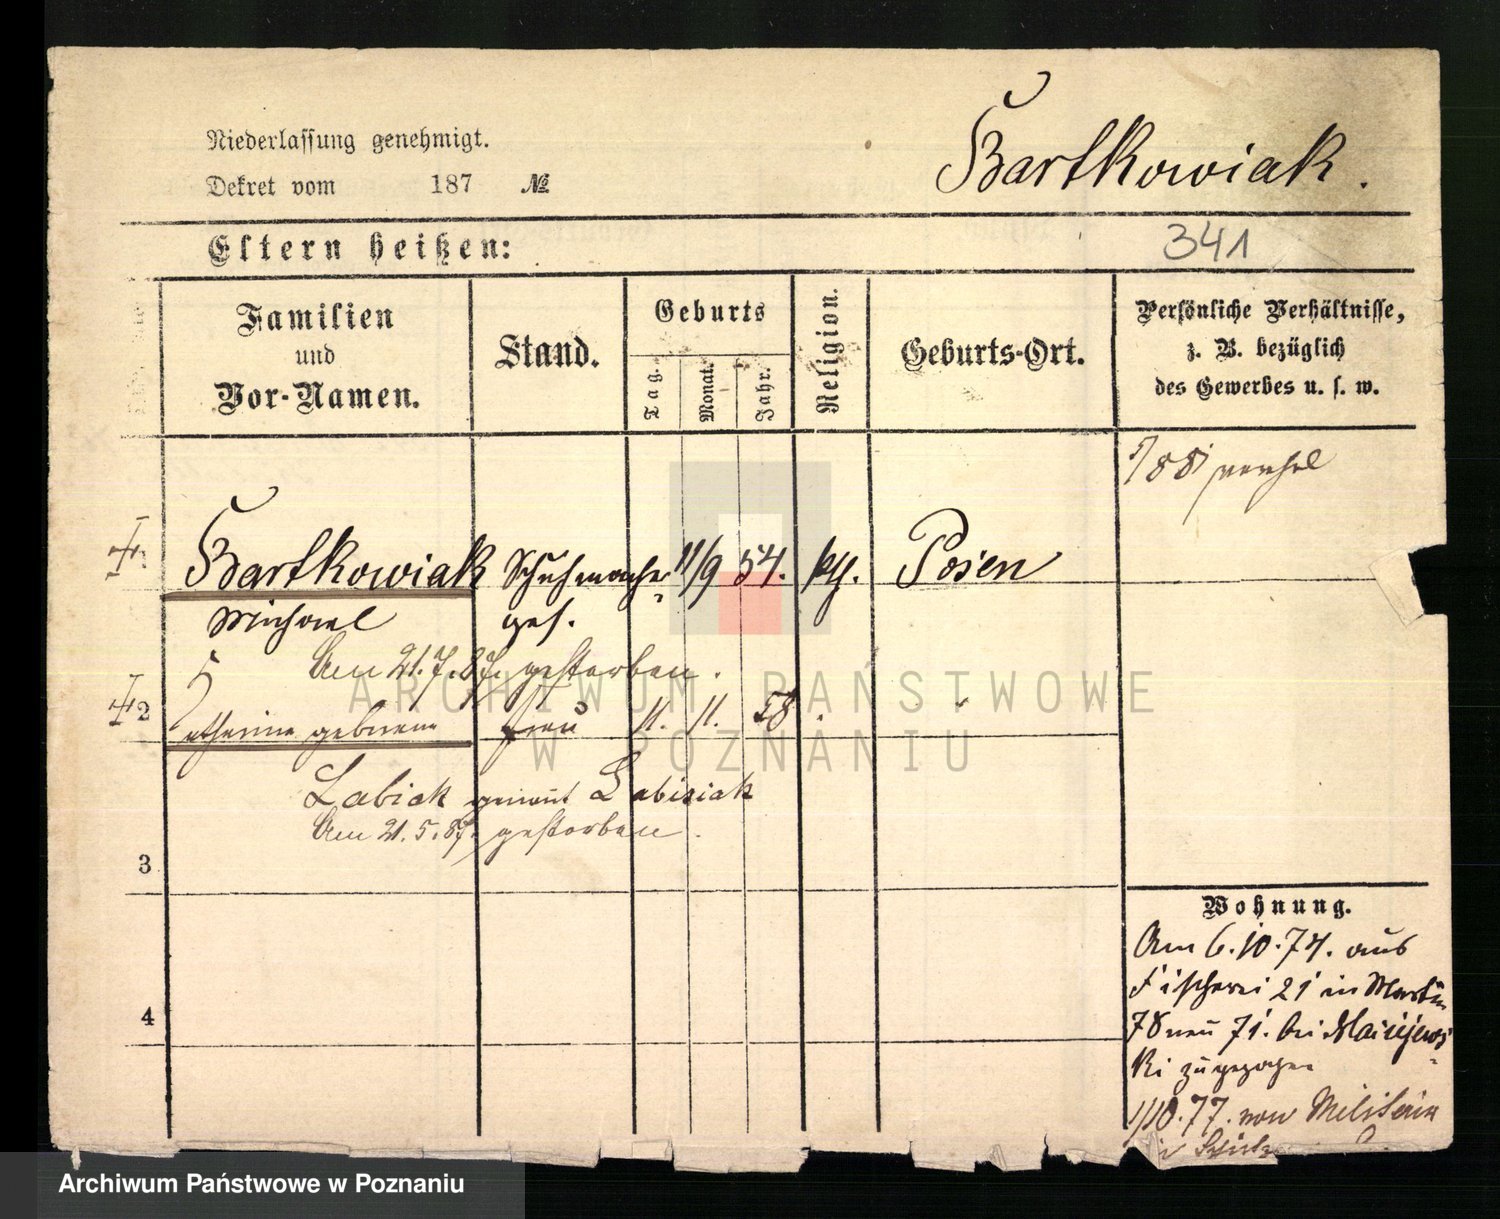 Niederlassung genehmigt.
Dekret vom 187 №
Bartkowiak.
Eltern heißen:
341
Familien und Vor-Namen.
Stand.
Geburts
Tag.
Monat.
Jahr.
Religion.
Geburts-Ort.
Persönliche Verhältnisse,
z. B. bezüglich
des Gewerbes u. s. w.
/88
1
Bartkowiak Schuhmacher 11/9 54. kth. Posen
Michael ges.
Am 21.7.87. gestorben.
2
Catherina geborene Frau 11. 11. 58
Labiak genannt Labisiak
Am 21.5.87. gestorben.
3
4
Wohnung.
Am 6.10.74. aus
Fischerei 21 in Martin
78 neu 71. bei Maciejews
ki zugezogen
1/10.77. von Militair
zurück
ARCHIWUM PAŃSTWOWE
W POZNANIU
Archiwum Państwowe w Poznaniu